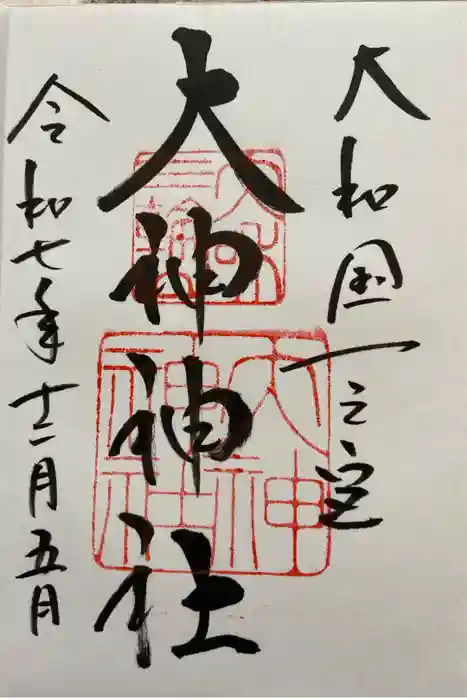 大和国一之宮
大神神社
大神
神社
令和七年十二月五日